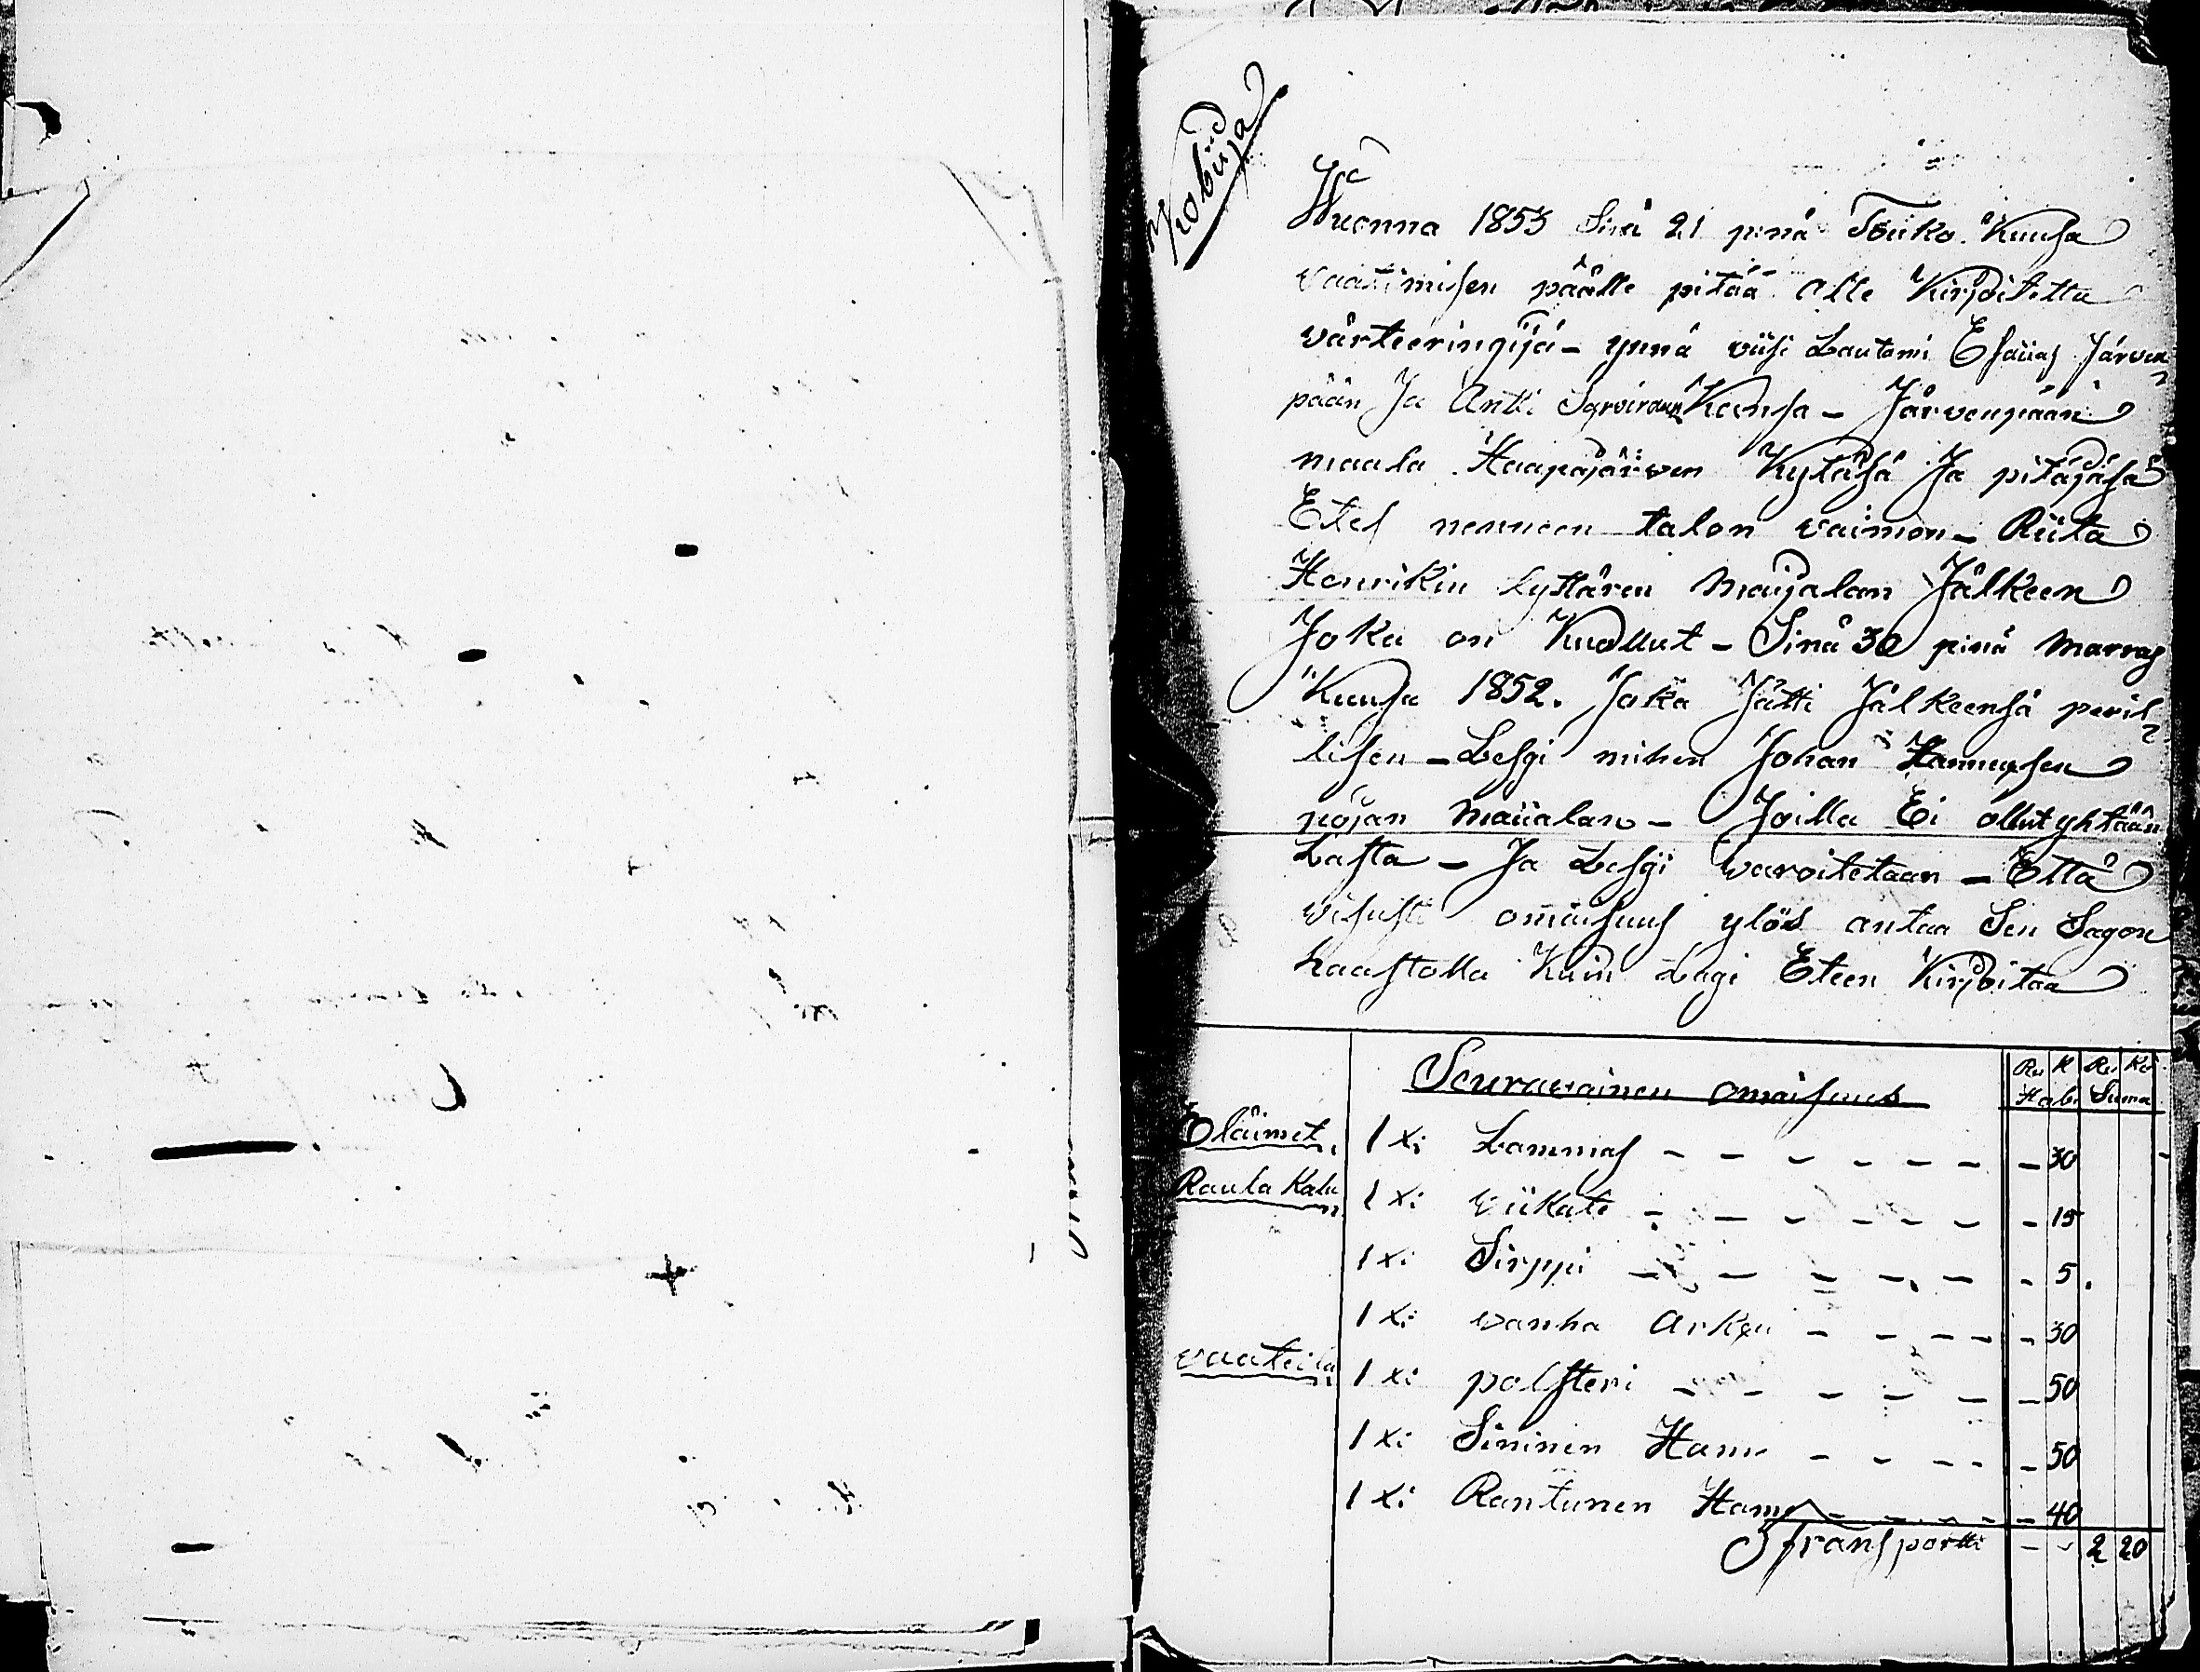 Kobiija
Wuonna 1853 Sinä 21 pnä Touko Kuusa
vaatimisen päälle pitää alle Kirjoitettu
värteeringijä - ynnä viisi Lautami Esaias Järven
pään Ja Anti Kansa - Järvenpään
maala Haapajärven Kyläsä Ja pitäjäsä
Etes menneen talon vaimon - Riita
Henrikin tyttären Maijalan Jälkeen
Joka on Kuollut - Sinä 30 pinä Marras
Kuusa 1852. Joka Jätti Jälkeensä peril
lisen - Lesgi mihen Johan Hannuxsen
pojan Maiialan - Joilla Ei ollut yhtään
Lasta - Ja Lesgi varoitetaan - Että
visusti omaisuus ylös antaa Sen
haastolla Kuin Lagi Eteen Kirjoitaa
Seuravainen omaisuus Ru K Ru Ko
Hab. Suma
Eläimet 1 xi Lammas - 30
Rauta Kalu 1 xi viikate - 15
1 xi Sirppi - 5
1 xi vanha Arkku - 30
vaateita 1 xi polsteri - 50
1 xi Sininen Hame - 50
1 xi Rantunen Hame - 40
Transportti - - 2 20